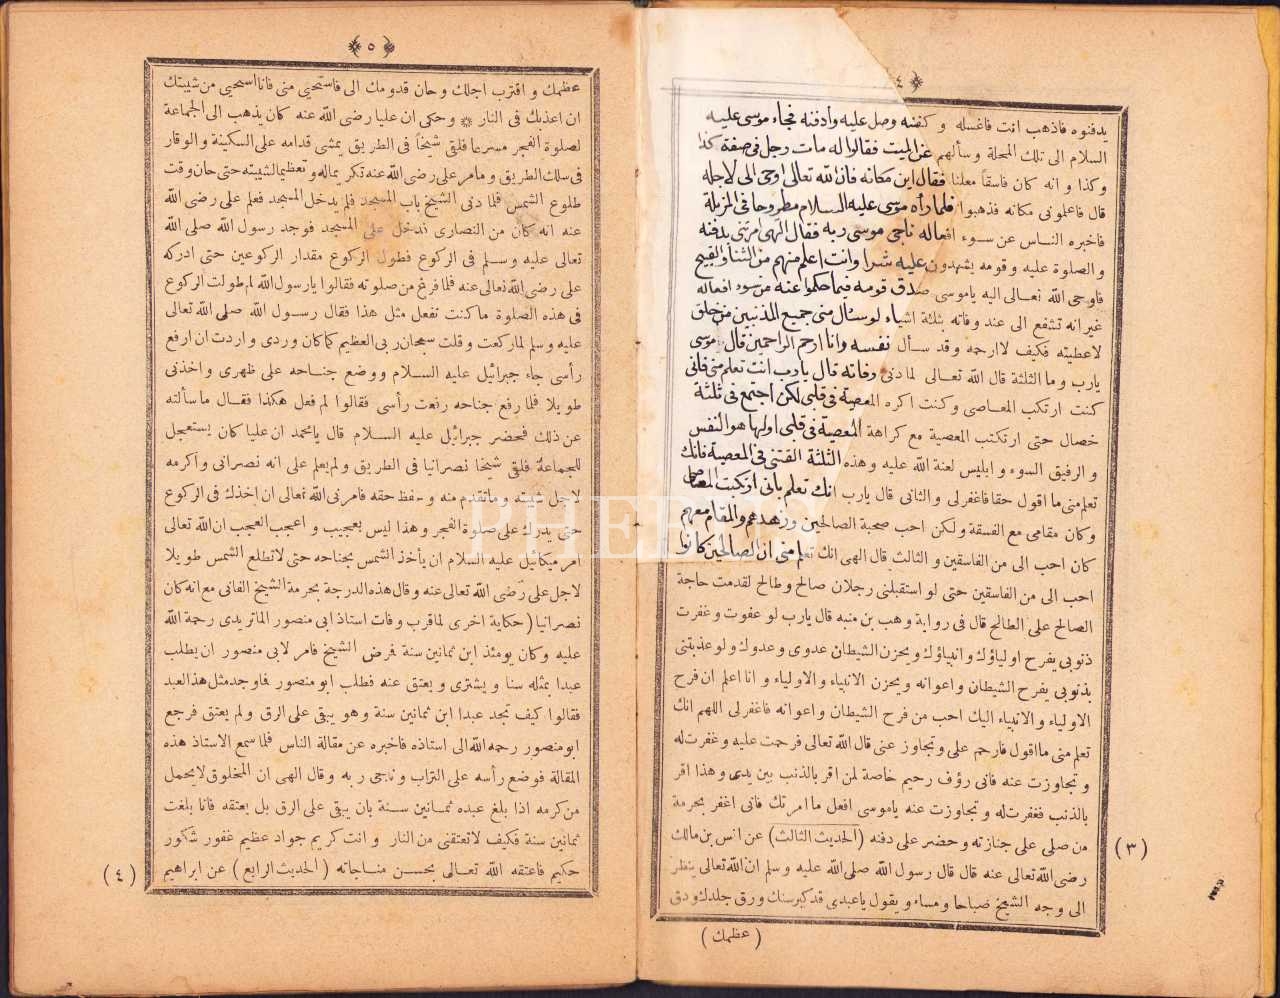 ٤
يدفنوه فاذهب انت فاغسله وكفنه وصل عليه وأدفنه فجاء موسى عليه
السلام الى تلك المحلة وسألهم عن الميت فقالوا له مات رجل فى صفة كذا
وكذا و انه كان فاسقاً معلنا فقال اين مكانه فان الله تعالى اوحى الى لاجله
قال فاعلمونى مكانه فذهبوا فلما رأه موسى عليه السلام مطروحا فى المزبلة
فاخبره الناس عن سوء افعاله ناجى موسى ربه فقال الهى امرتنى بدفنه
و الصلوة عليه و قومه يشهدون عليه شرا وانت اعلم منهم من الثناء والقبيح
فاوحى الله تعالى اليه ياموسى صدق قومه فيما حكموا عنه من سوء افعاله
غير انه تشفع الى عند وفاته بثلثة اشياء لو سئال منى جميع المذنبين من خلق
لاعطيته فكيف لاارحمه وقد سأل نفسه وانا ارحم الراحمين قال موسى
يارب و ما الثلثة قال الله تعالى لما دنى وفاته قال يارب انت تعلم منى فانى
كنت ارتكب المعاصى وكنت اكره المعصية فى قلبى لكن اجتمع فى ثلثة
خصال حتى ارتكبت المعصية مع كراهة المعصية فى قلبى اولها هو النفس
و الرفيق السوء و ابليس لعنة الله عليه وهذه الثلثة القتنى فى المعصية فانك
تعلم منى ما اقول حقا فاغفرلى و الثانى قال يارب انك تعلم بانى ارتكبت المعاصى
وكان مقامى مع الفسقة و لكن احب صحبة الصالحين وزهدهم والمقام معهم
كان احب الى من الفاسقين و الثالث قال الهى انك تعلم منى ان الصالحين كانوا
احب الى من الفاسقين حتى لو استقبلنى رجلان صالح و طالح لقدمت حاجة
الصالح على الطالح قال فى رواية وهب بن منبه قال يارب لو عفوت وغفرت
ذنوبى يفرح اولياؤك و انبياؤك ويحزن الشيطان عدوى و عدوك ولو عذبتنى
بذنوبى يفرح الشيطان و اعوانه ويحزن الانبياء والاولياء و انا اعلم ان فرح
الاولياء و الانبياء اليك احب من فرح الشيطان و اعوانه فاغفرلى اللهم انك
تعلم منى ما اقول فارحم على وتجاوز عنى قال الله تعالى فرحمت عليه وغفرت له
و تجاوزت عنه فانى رؤف رحيم خاصة لمن اقر بالذنب بين يدى وهذا اقر
بالذنب فغفرت له و تجاوزت عنه ياموسى افعل ما امرتك فانى اغفر بحرمة
من صلى على جنازته وحضر على دفنه (الحديث الثالث) عن انس بن مالك
رضى الله تعالى عنه قال قال رسول الله صلى الله عليه وسلم ان الله تعالى ينظر
الى وجه الشيخ صباحا ومساء ويقول ياعبدى قد كبر سنك ورق جلدك ودق
(عظمك)
(٣)
٥
عظمك و اقترب اجلك وحان قدومك الى فاستحيى منى فانا استحيى من شيبتك
ان اعذبك فى النار وحكى ان عليا رضى الله عنه كان يذهب الى الجماعة
لصلوة الفجر مسرعا فلقى شيخاً فى الطريق يمشى قدامه على السكينة والوقار
فى سلك الطريق و مامر على رضى الله عنه تكريما له وتعظيما لشيبته حتى حان وقت
طلوع الشمس فلما دنى الشيخ باب المسجد فلم يدخل المسجد فعلم على رضى الله
عنه انه كان من النصارى فدخل على المسجد فوجد رسول الله صلى الله
تعالى عليه وسلم فى الركوع فطول الركوع مقدار الركوعين حتى ادركه
على رضى الله تعالى عنه فلما فرغ من صلوته فقالوا يارسول الله لم طولت الركوع
فى هذه الصلوة ما كنت تفعل مثل هذا فقال رسول الله صلى الله تعالى
عليه وسلم لما ركعت وقلت سبحان ربى العظيم كما كان وردى واردت ان ارفع
رأسى جاء جبرائيل عليه السلام ووضع جناحه على ظهرى و اخذنى
طويلا فلما رفع جناحه رفعت رأسى فقالوا لم فعل هكذا فقال ما سألته
عن ذلك فحضر جبرائيل عليه السلام قال يامحمد ان عليا كان يستعجل
للجماعة فلقى شيخا نصرانيا فى الطريق ولم يعلم على انه نصرانى واكرمه
لاجل شيبته وماتقدم منه و حفظ حقه فامرنى الله تعالى ان اخذك فى الركوع
حتى يدرك على صلوة الفجر و هذا ليس بعجيب و اعجب العجب ان الله تعالى
امر ميكائيل عليه السلام ان يأخذ الشمس بجناحه حتى لا تطلع الشمس طويلا
لاجل على رضى الله تعالى عنه وقال هذه الدرجة بحرمة الشيخ الفانى مع انه كان
نصرانيا (حكاية اخرى لما قرب وفات استاذ ابى منصور الماتريدى رحمة الله
عليه وكان يومئذ ابن ثمانين سنة فرض الشيخ فامر لابى منصور ان يطلب
عبدا بمثله سنا و يشترى و يعتق عنه فطلب ابو منصور فاوجد مثل هذا العبد
فقالوا كيف تجد عبدا ابن ثمانين سنة وهو يبقى على الرق ولم يعتق فرجع
ابو منصور رحمه الله الى استاذه فاخبره عن مقالة الناس فلما سمع الاستاذ هذه
المقالة فوضع رأسه على التراب وناجى ربه وقال الهى ان المخلوق لا يحمل
من كرمه اذا بلغ عبده ثمانين سنة بان يبقى على الرق بل يعتقه فانا بلغت
ثمانين سنة فكيف لا تعتقنى من النار و انت كريم جواد عظيم غفور شكور
حكيم فاعتقه الله تعالى بحسن مناجاته (الحديث الرابع) عن ابراهيم
(٤)
PHEBUS